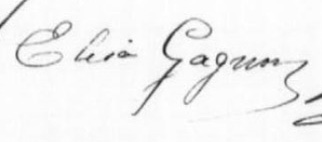 Elisa Gagnon